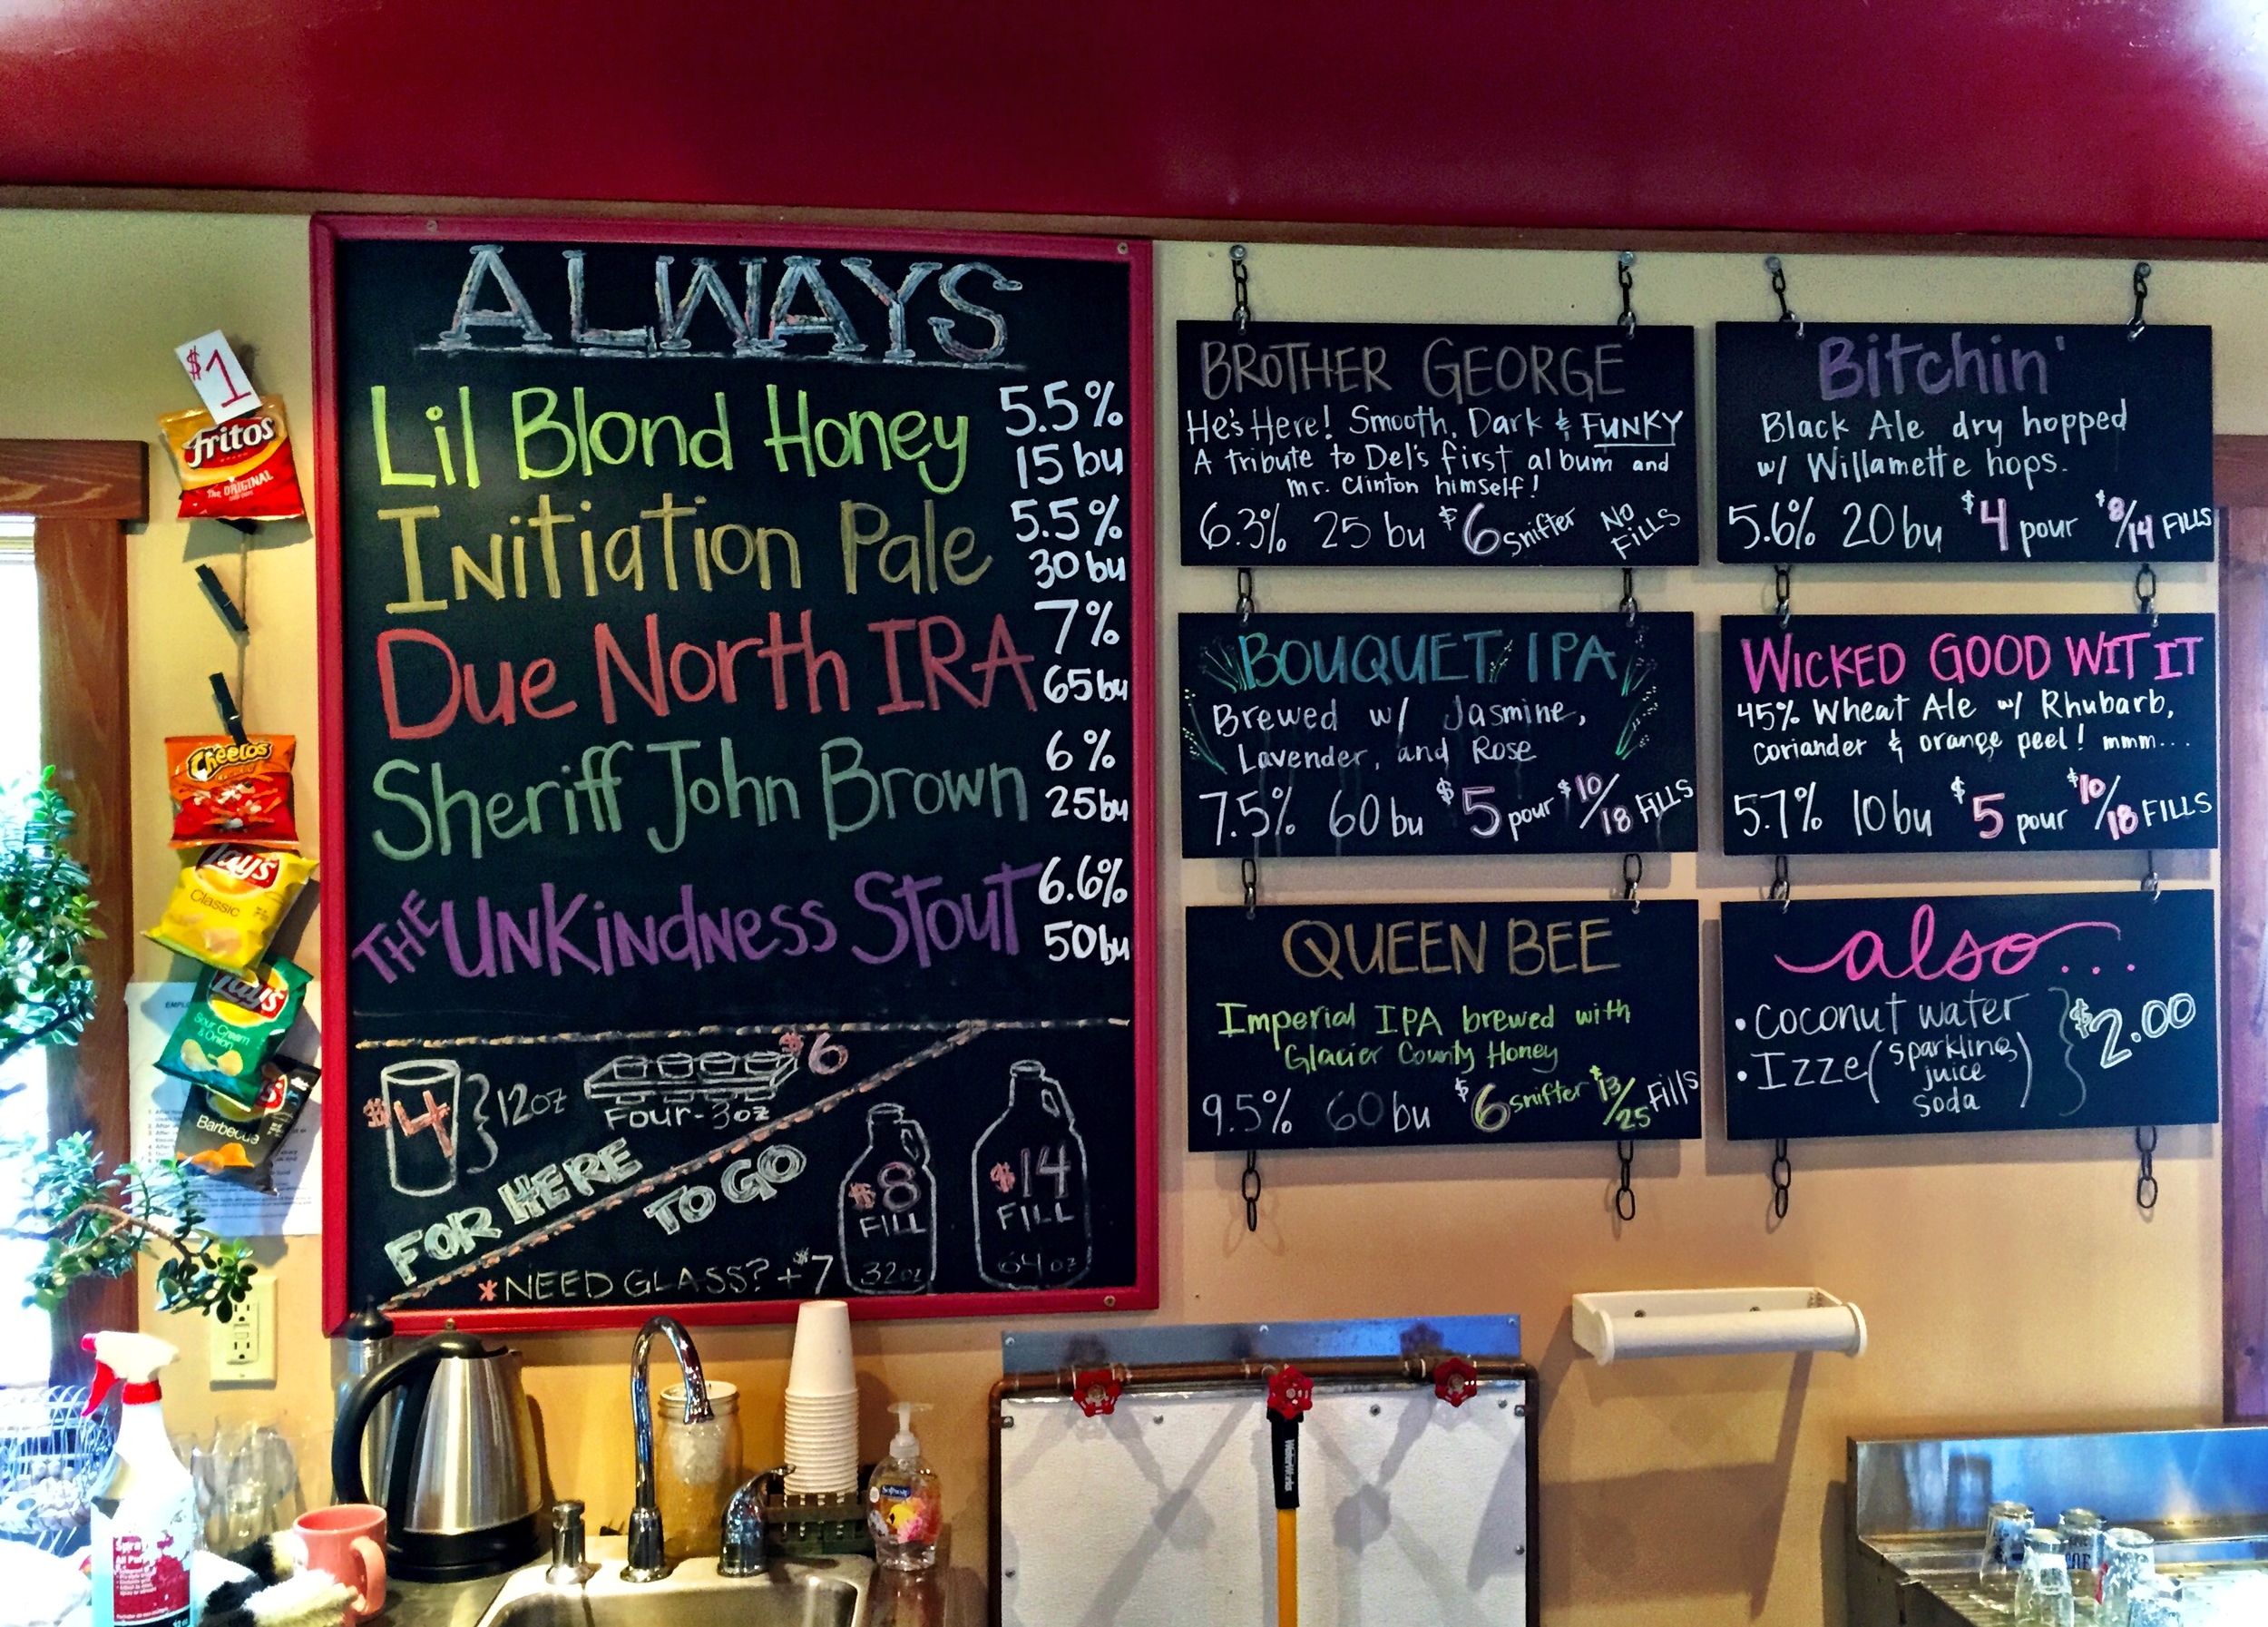 ALWAYS
Lil Blond Honey 5.5%
15 bu
Initiation Pale 5.5%
30 bu
Due North IRA 7%
65 bu
Sheriff John Brown 6%
25 bu
THE UNKINDNESS STOUT 6.6%
50 bu
$4 12oz
$6
FOUR-3oz
FOR HERE
TO GO
$8
FILL
32oz
$14
FILL
64oz
*NEED GLASS? +$7
BROTHER GEORGE
He's Here! Smooth, Dark & FUNKY
A tribute to Del's first album and
Mr. Clinton himself!
6.3% 25 bu $6 snifter NO FILLS
Bitchin'
Black Ale dry hopped
w/ Willamette hops.
5.6% 20 bu $4 pour $8/14 FILLS
BOUQUET IPA
Brewed w/ Jasmine,
Lavender, and Rose
7.5% 60 bu $5 pour $10/18 FILLS
WICKED GOOD WIT IT
45% Wheat Ale w/ Rhubarb,
coriander & orange peel! mmm...
5.7% 10 bu $5 pour $10/18 FILLS
QUEEN BEE
Imperial IPA brewed with
Glacier County Honey
9.5% 60 bu $6 snifter $13/25 Fills
also...
• Coconut water
• Izze (sparkling juice soda) $2.00
$1
Fritos
THE ORIGINAL
Cheetos
Lay's
Classic
Lay's
Sour Cream
& Onion
Barbecue
Softsoap
WaterWorks